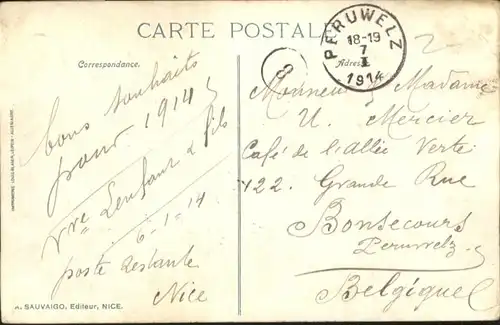 CARTE POSTALE
Correspondance.
Adresse
PERUWELZ
18-19
7
I
1914
8
2
bons souhaits
pour 1914
Vve Lenfant & fils
6-1-14
poste restante
Nice
Monsieur & Madame
U. Mercier
Café de l'allée Verte
122. Grande Rue
Bonsecours
Peruwelz
Belgique
A. SAUVAIGO, Editeur, NICE.